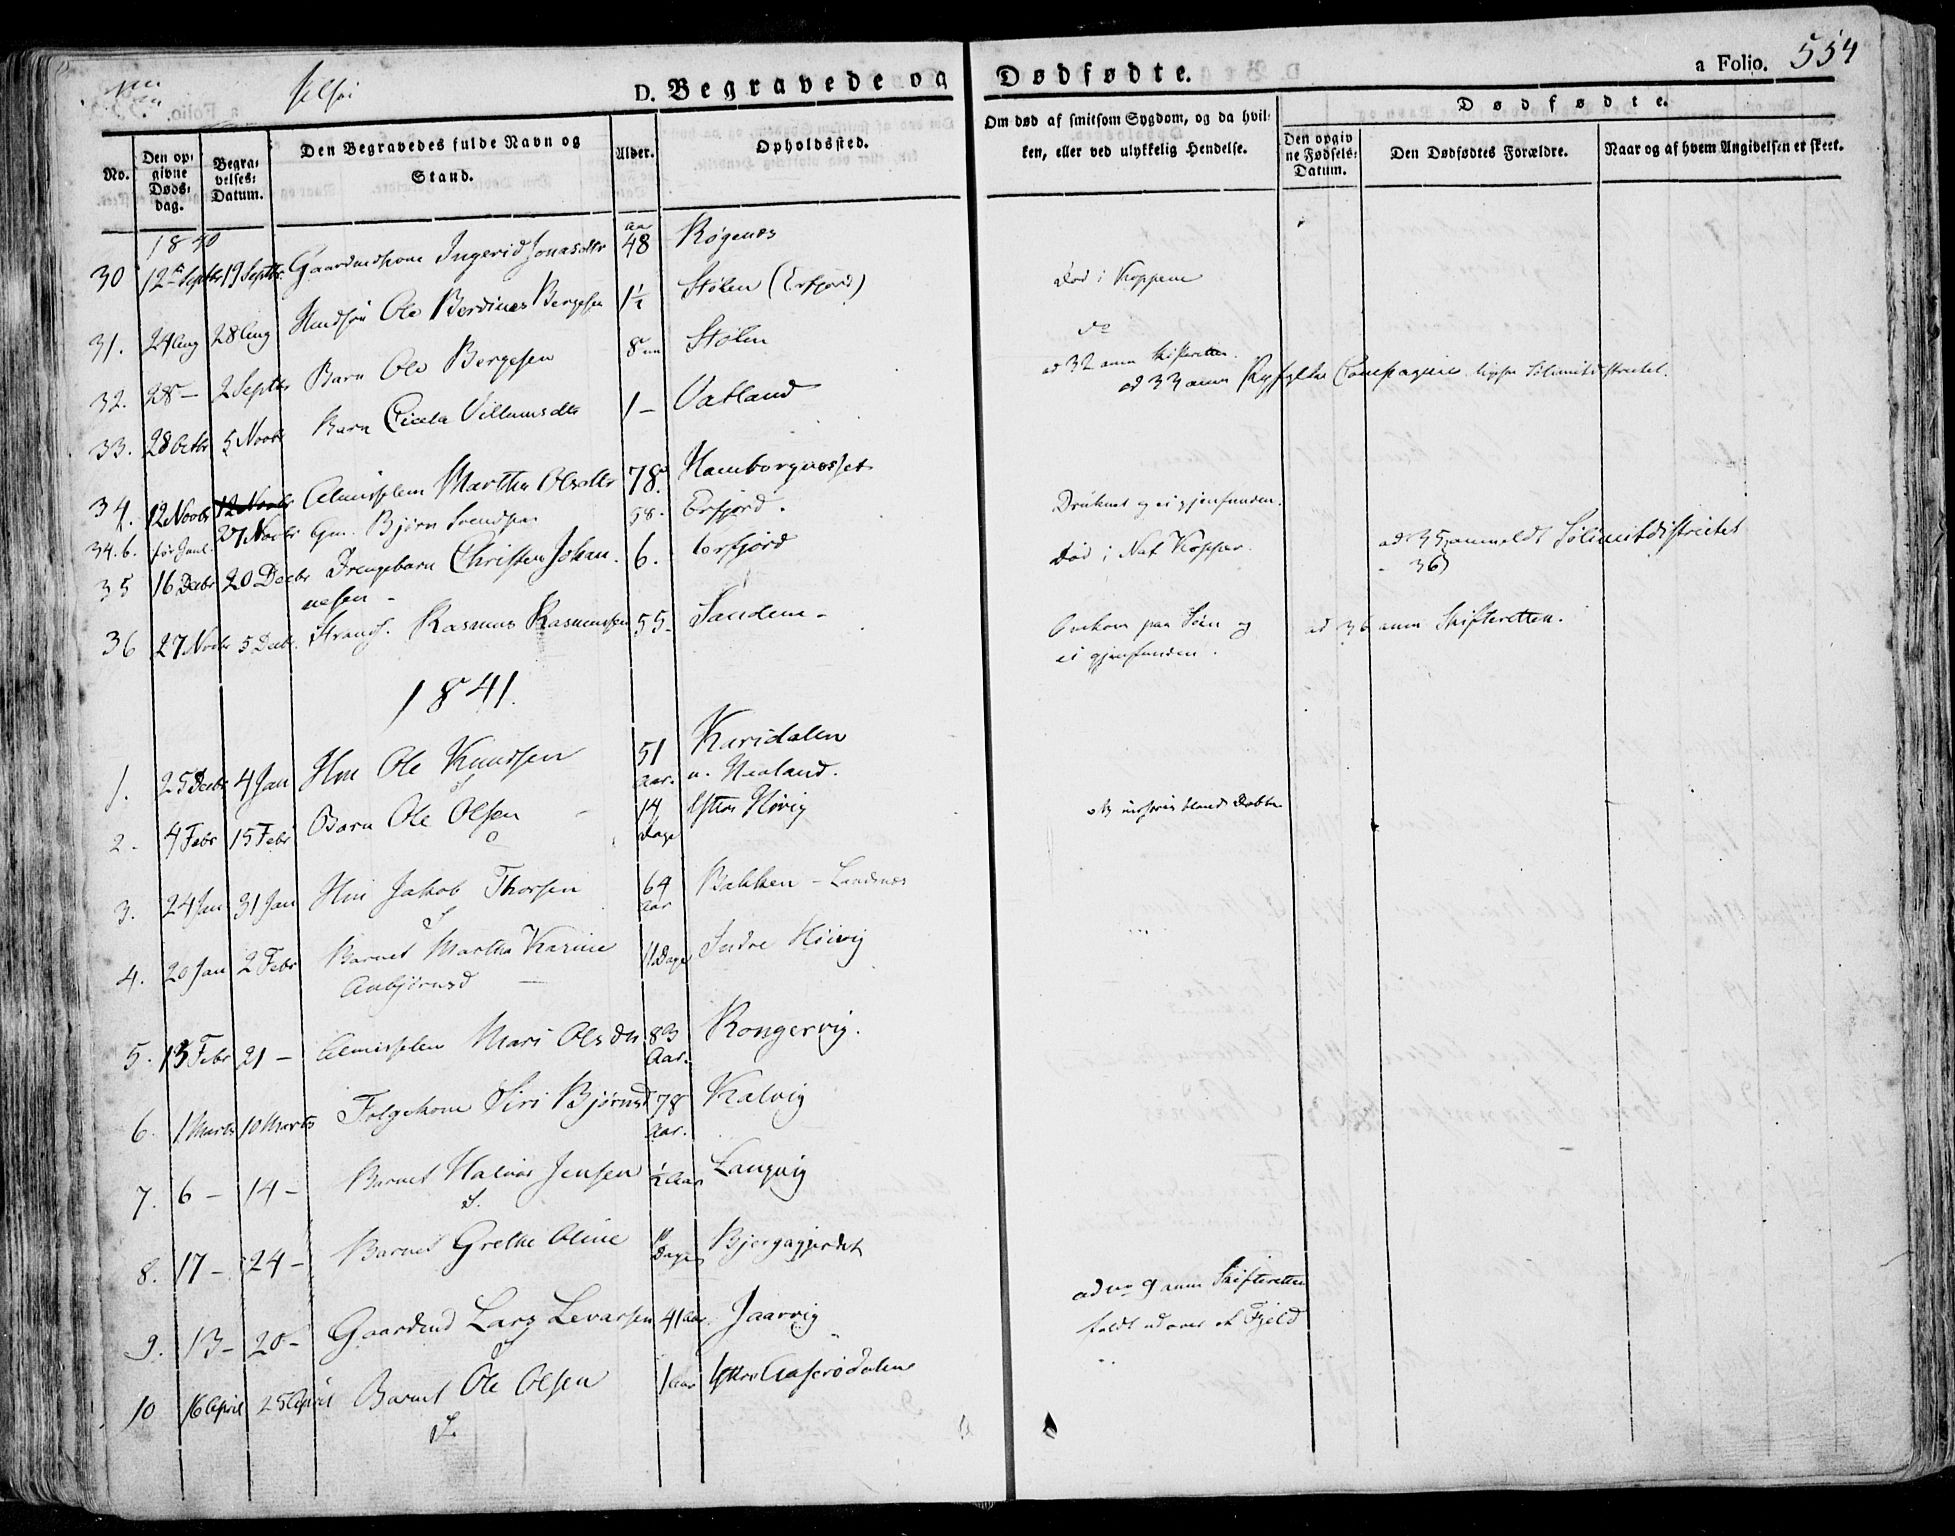 Jelsøi
D. Begravede og Dødfødte.
a Folio. 554
No.
Den opgivne Døds-dag.
Begravelses-Datum.
Den Begravedes fulde Navn og Stand.
Alder.
Opholdssted.
Om død af smitsom Sygdom, og da hvilken, eller ved ulykkelig Hendelse.
Dødfødte.
Den opgivne Fødsels-Datum.
Den Dødfødtes Forældre.
Naar og af hvem Angivelsen er skeet.
1840
30 12 Septbr 19 Septbr Gaardmdkone Ingerid Jonasdtr 48 Røgenæs Død i Kopperne
31. 24 Aug 28 Aug Ole Berdines Bergesen 1½ Stølen (Erfjord) do
32. 28 — 2 Septbr Barn Ole Bergesen 8 Stølen ad 32 anm Skifteretten.
ad 33 anm Ryfylke Compagnie
33. 28 Octbr 5 Novbr Barn Cicela Villumsdtr 1 — Vatland
34. 12 Novbr 12 Novbr Almisselem Martha Olsdtr 78. Hamborgnæsset
34.b. før Juul. 27 Novbr Gm. Bjørn Svendsen 58. Erfjord. Druknet og ei gjenfunden.
35 16 Decbr 20 Decbr Drengebarn Christen Johan- 6. Erfjord Død i Nat. Kopper. ad 35 anmeldt
nesen - - 36
36 27 Novbr 5 Decbr. Strands. Rasmus Rasmussen 55 - Sandene - Omkom paa Søen og ad 36 anm Skifteretten.
ei gjenfunden.
1841.
1. 25 Decbr 4 Jan Hm Ole Knudsen 51 Aar. Karidalen
u. Healand.
2. 4 Febr 15 Febr Barn Ole Olsen 14 Dage Høvig
3. 24 Jan 31 Jan Hm Jakob Thorsen 64 Aar Bakken - Landsnæs
4. 20 Jan 2 Febr Barnet Martha Karine 11 Dage Indre Høivig
Anbjørnsd —
5. 13 Febr 21 — Almisselem Mari Olsdtr 83 Aar. Kongervig.
6. 1 Marts 10 Marts Folgekone Siri Bjørnsd 78 Aar. Kalvig
7. 6 — 14 — Barnet Halvor Jensen ½ Aar Langvig
8. 17 — 24 — Barnet Grethe Oline Dage Bjergagjerdet
9. 13 — 20 — Gaardmd Lars Levarsen 41 Aar Jaarvig ad no 9 anm Skifteretten
faldt ud over et Fjeld
10 16 April 25 April Barnet Ole Olsen 1 Aar